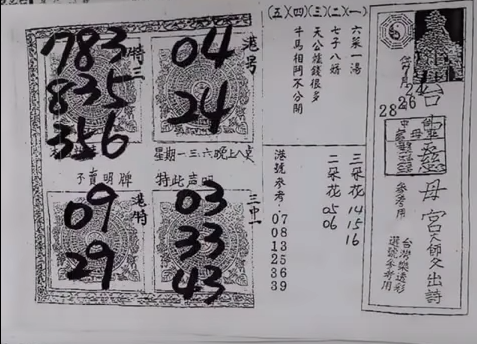 783
835
356
特三
04
24
港号
星期一三六晚上八点
不賣明牌
特此声明
09
29
港特
03
33
43
三中一
(五)(四)(三)(二)(一)
六菜一湯
七子八婿
天公娃錢很多
牛馬相阿不分開
港號來考:07
08
13
25
36
39
二朵花 05
06
三朵花 14
15
16
24
26
28
慈母宮
天師文出詩
參考用
台灣樂透彩
選號參考用